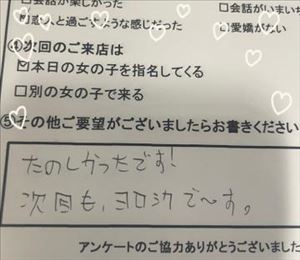 □会話が楽しかった □会話がいまいち
☑恋人と過ごすような感じだった □愛嬌がない
④次回のご来店は
☑本日の女の子を指名してくる
□別の女の子で来る
⑤その他ご要望がございましたらお書きください
たのしかったです!
次回も、ヨロシクで〜す。
アンケートのご協力ありがとうございました